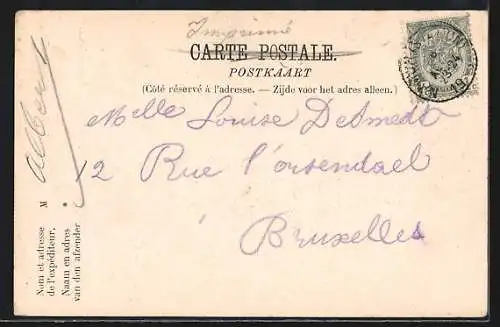 Imprimé
CARTE POSTALE.
POSTKAART
(Côté réservé à l'adresse. — Zijde voor het adres alleen.)
Melle Louise DeSmedt
12 Rue l'ousendael
à
Bruxelles
M Albert
Nom et adresse
de l'expéditeur.
Naam en adres
van den afzender